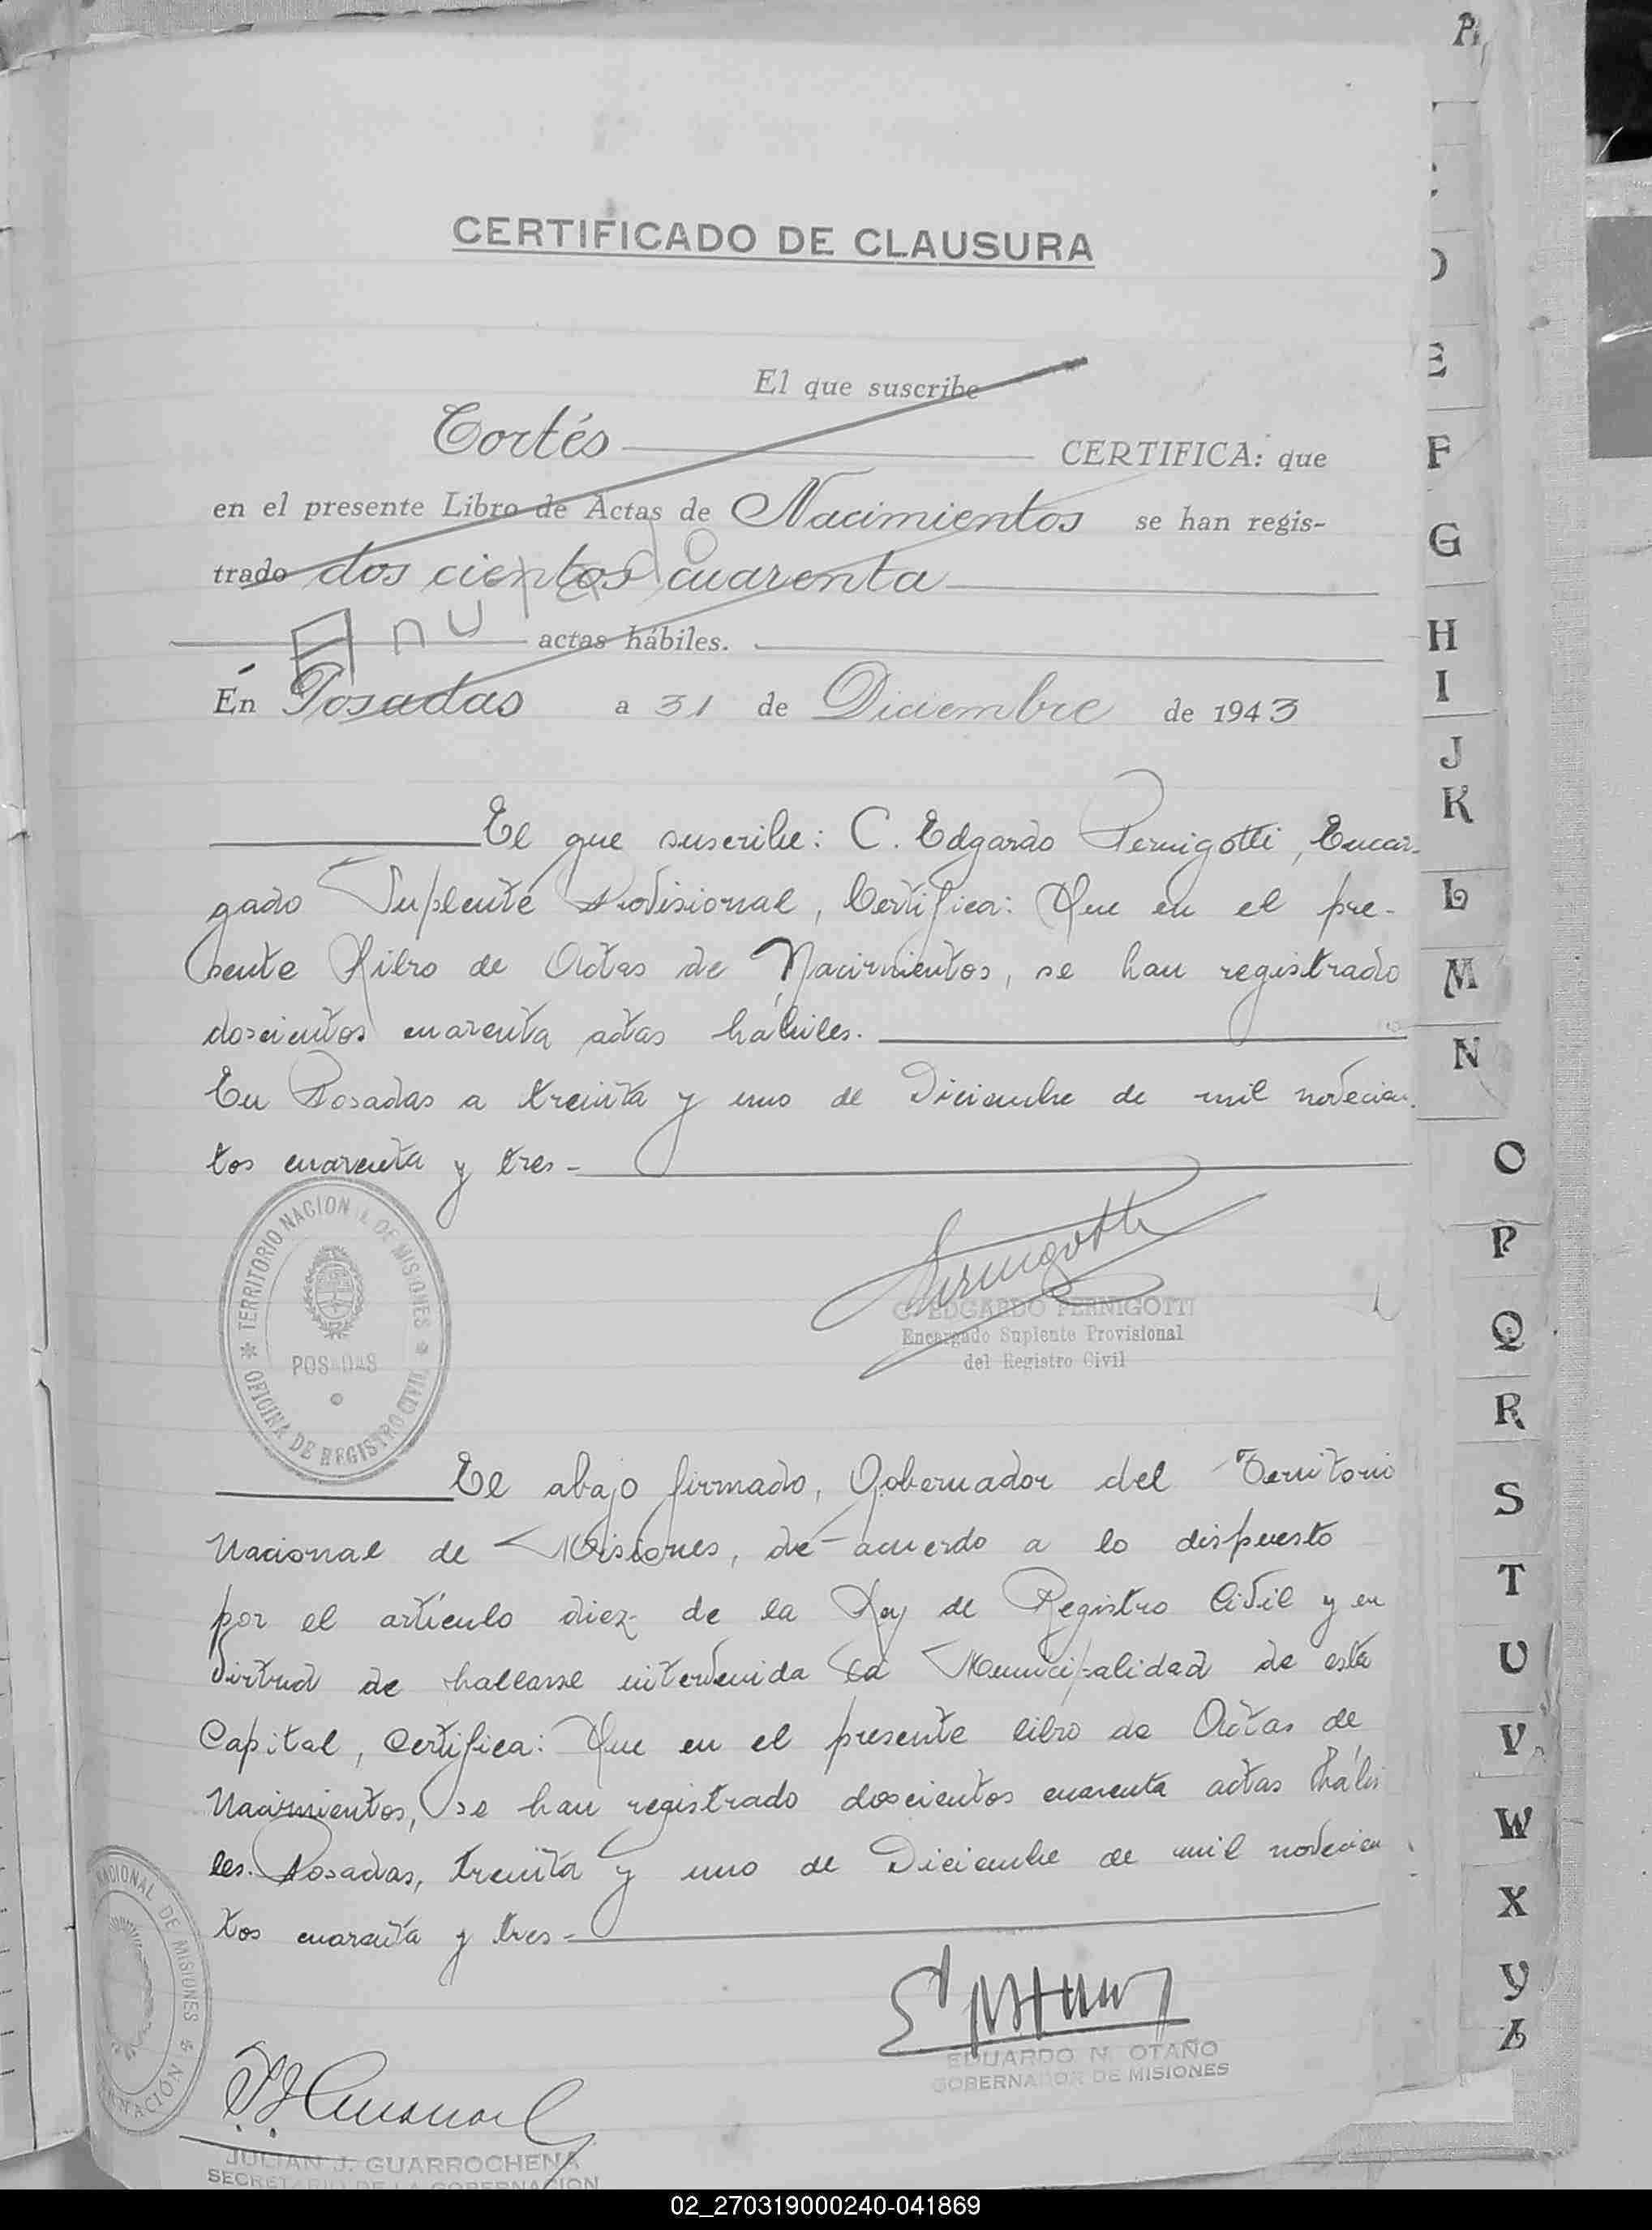 CERTIFICADO DE CLAUSURA
El que suscribe
Cortés CERTIFICA: que
en el presente Libro de Actas de Nacimientos se han regis-
trado dos cientos cuarenta
Anulado
actas hábiles.
En Posadas a 31 de Diciembre de 1943
El que suscribe: C. Edgardo Pernigotti, Encar-
gado Suplente Provisional, Certifica: Que en el pre-
sente Libro de Actas de Nacimientos, se han registrado
doscientos cuarenta actas hábiles.
En Posadas a treinta y uno de Diciembre de mil novecien-
tos cuarenta y tres-
TERRITORIO NACIONAL DE MISIONES
POSADAS
OFICINA DE REGISTRO CIVIL
Pernigotti
C. EDGARDO PERNIGOTTI
Encargado Suplente Provisional
del Registro Civil
El abajo firmado, Gobernador del Territorio
Nacional de Misiones, de acuerdo a lo dispuesto
por el artículo diez de la Ley de Registro Civil y en
virtud de hallarse intervenida la Municipalidad de esta
Capital, Certifica: Que en el presente libro de Actas de
Nacimientos, se han registrado doscientos cuarenta actas hábi
les. Posadas, treinta y uno de Diciembre de mil novecien
tos cuarenta y tres-
NACIONAL DE MISIONES
EDUARDO N. OTAÑO
GOBERNADOR DE MISIONES
JULIAN J. GUARROCHENA
SECRETARIO DE LA GOBERNACION
A
C
D
E
F
G
H
I
J
K
L
M
N
O
P
Q
R
S
T
U
V
W
X
Y
Z
02_270319000240-041869